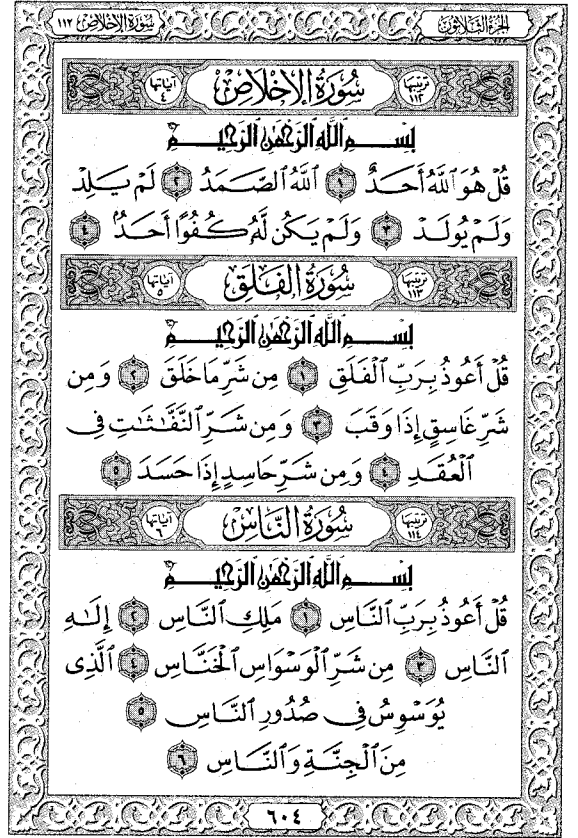 الجزء الثلاثون سورة الإخلاص ١١٢
ترتيبها ١١٢ سُورَةُ الإِخْلَاصِ آياتها ٤
بِسْمِ ٱللَّهِ ٱلرَّحْمَٰنِ ٱلرَّحِيمِ
قُلْ هُوَ ٱللَّهُ أَحَدٌ ١ ٱللَّهُ ٱلصَّمَدُ ٢ لَمْ يَلِدْ
وَلَمْ يُولَدْ ٣ وَلَمْ يَكُن لَّهُۥ كُفُوًا أَحَدٌۢ ٤
ترتيبها ١١٣ سُورَةُ الفَلَقِ آياتها ٥
بِسْمِ ٱللَّهِ ٱلرَّحْمَٰنِ ٱلرَّحِيمِ
قُلْ أَعُوذُ بِرَبِّ ٱلْفَلَقِ ١ مِن شَرِّ مَا خَلَقَ ٢ وَمِن
شَرِّ غَاسِقٍ إِذَا وَقَبَ ٣ وَمِن شَرِّ ٱلنَّفَّٰثَٰتِ فِى
ٱلْعُقَدِ ٤ وَمِن شَرِّ حَاسِدٍ إِذَا حَسَدَ ٥
ترتيبها ١١٤ سُورَةُ النَّاسِ آياتها ٦
بِسْمِ ٱللَّهِ ٱلرَّحْمَٰنِ ٱلرَّحِيمِ
قُلْ أَعُوذُ بِرَبِّ ٱلنَّاسِ ١ مَلِكِ ٱلنَّاسِ ٢ إِلَٰهِ
ٱلنَّاسِ ٣ مِن شَرِّ ٱلْوَسْوَاسِ ٱلْخَنَّاسِ ٤ ٱلَّذِى
يُوَسْوِسُ فِى صُدُورِ ٱلنَّاسِ ٥
مِنَ ٱلْجِنَّةِ وَٱلنَّاسِ ٦
٦٠٤